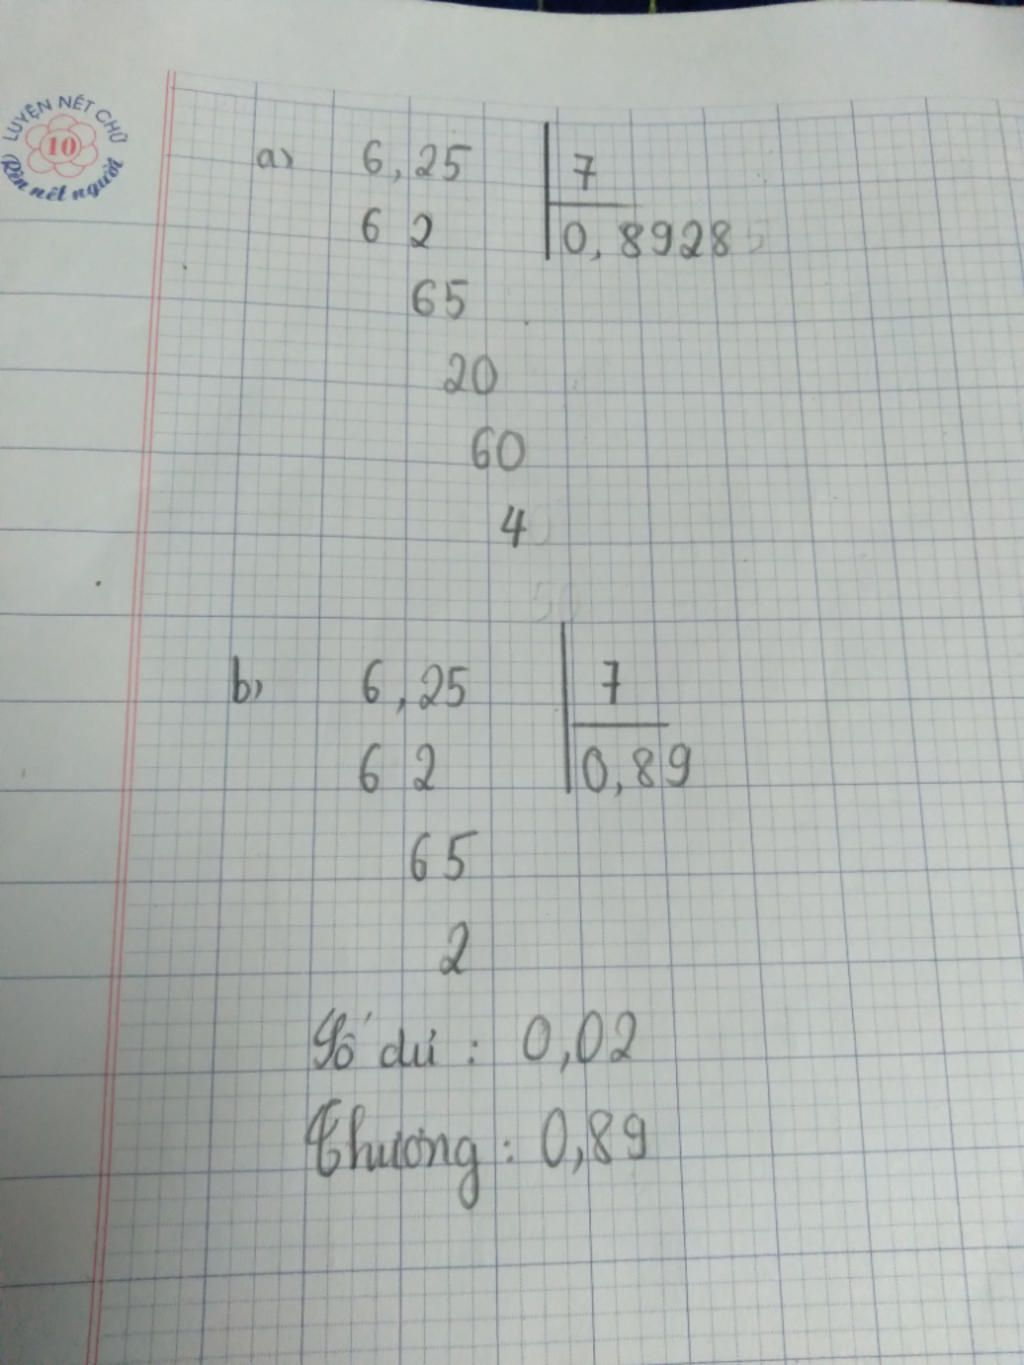 LUYỆN NÉT CHỮ
10
Rèn nết người
a) 6,25 7
6 2 0,8928
65
20
60
4
b) 6,25 7
6 2 0,89
65
2
Số dư : 0,02
Thương : 0,89